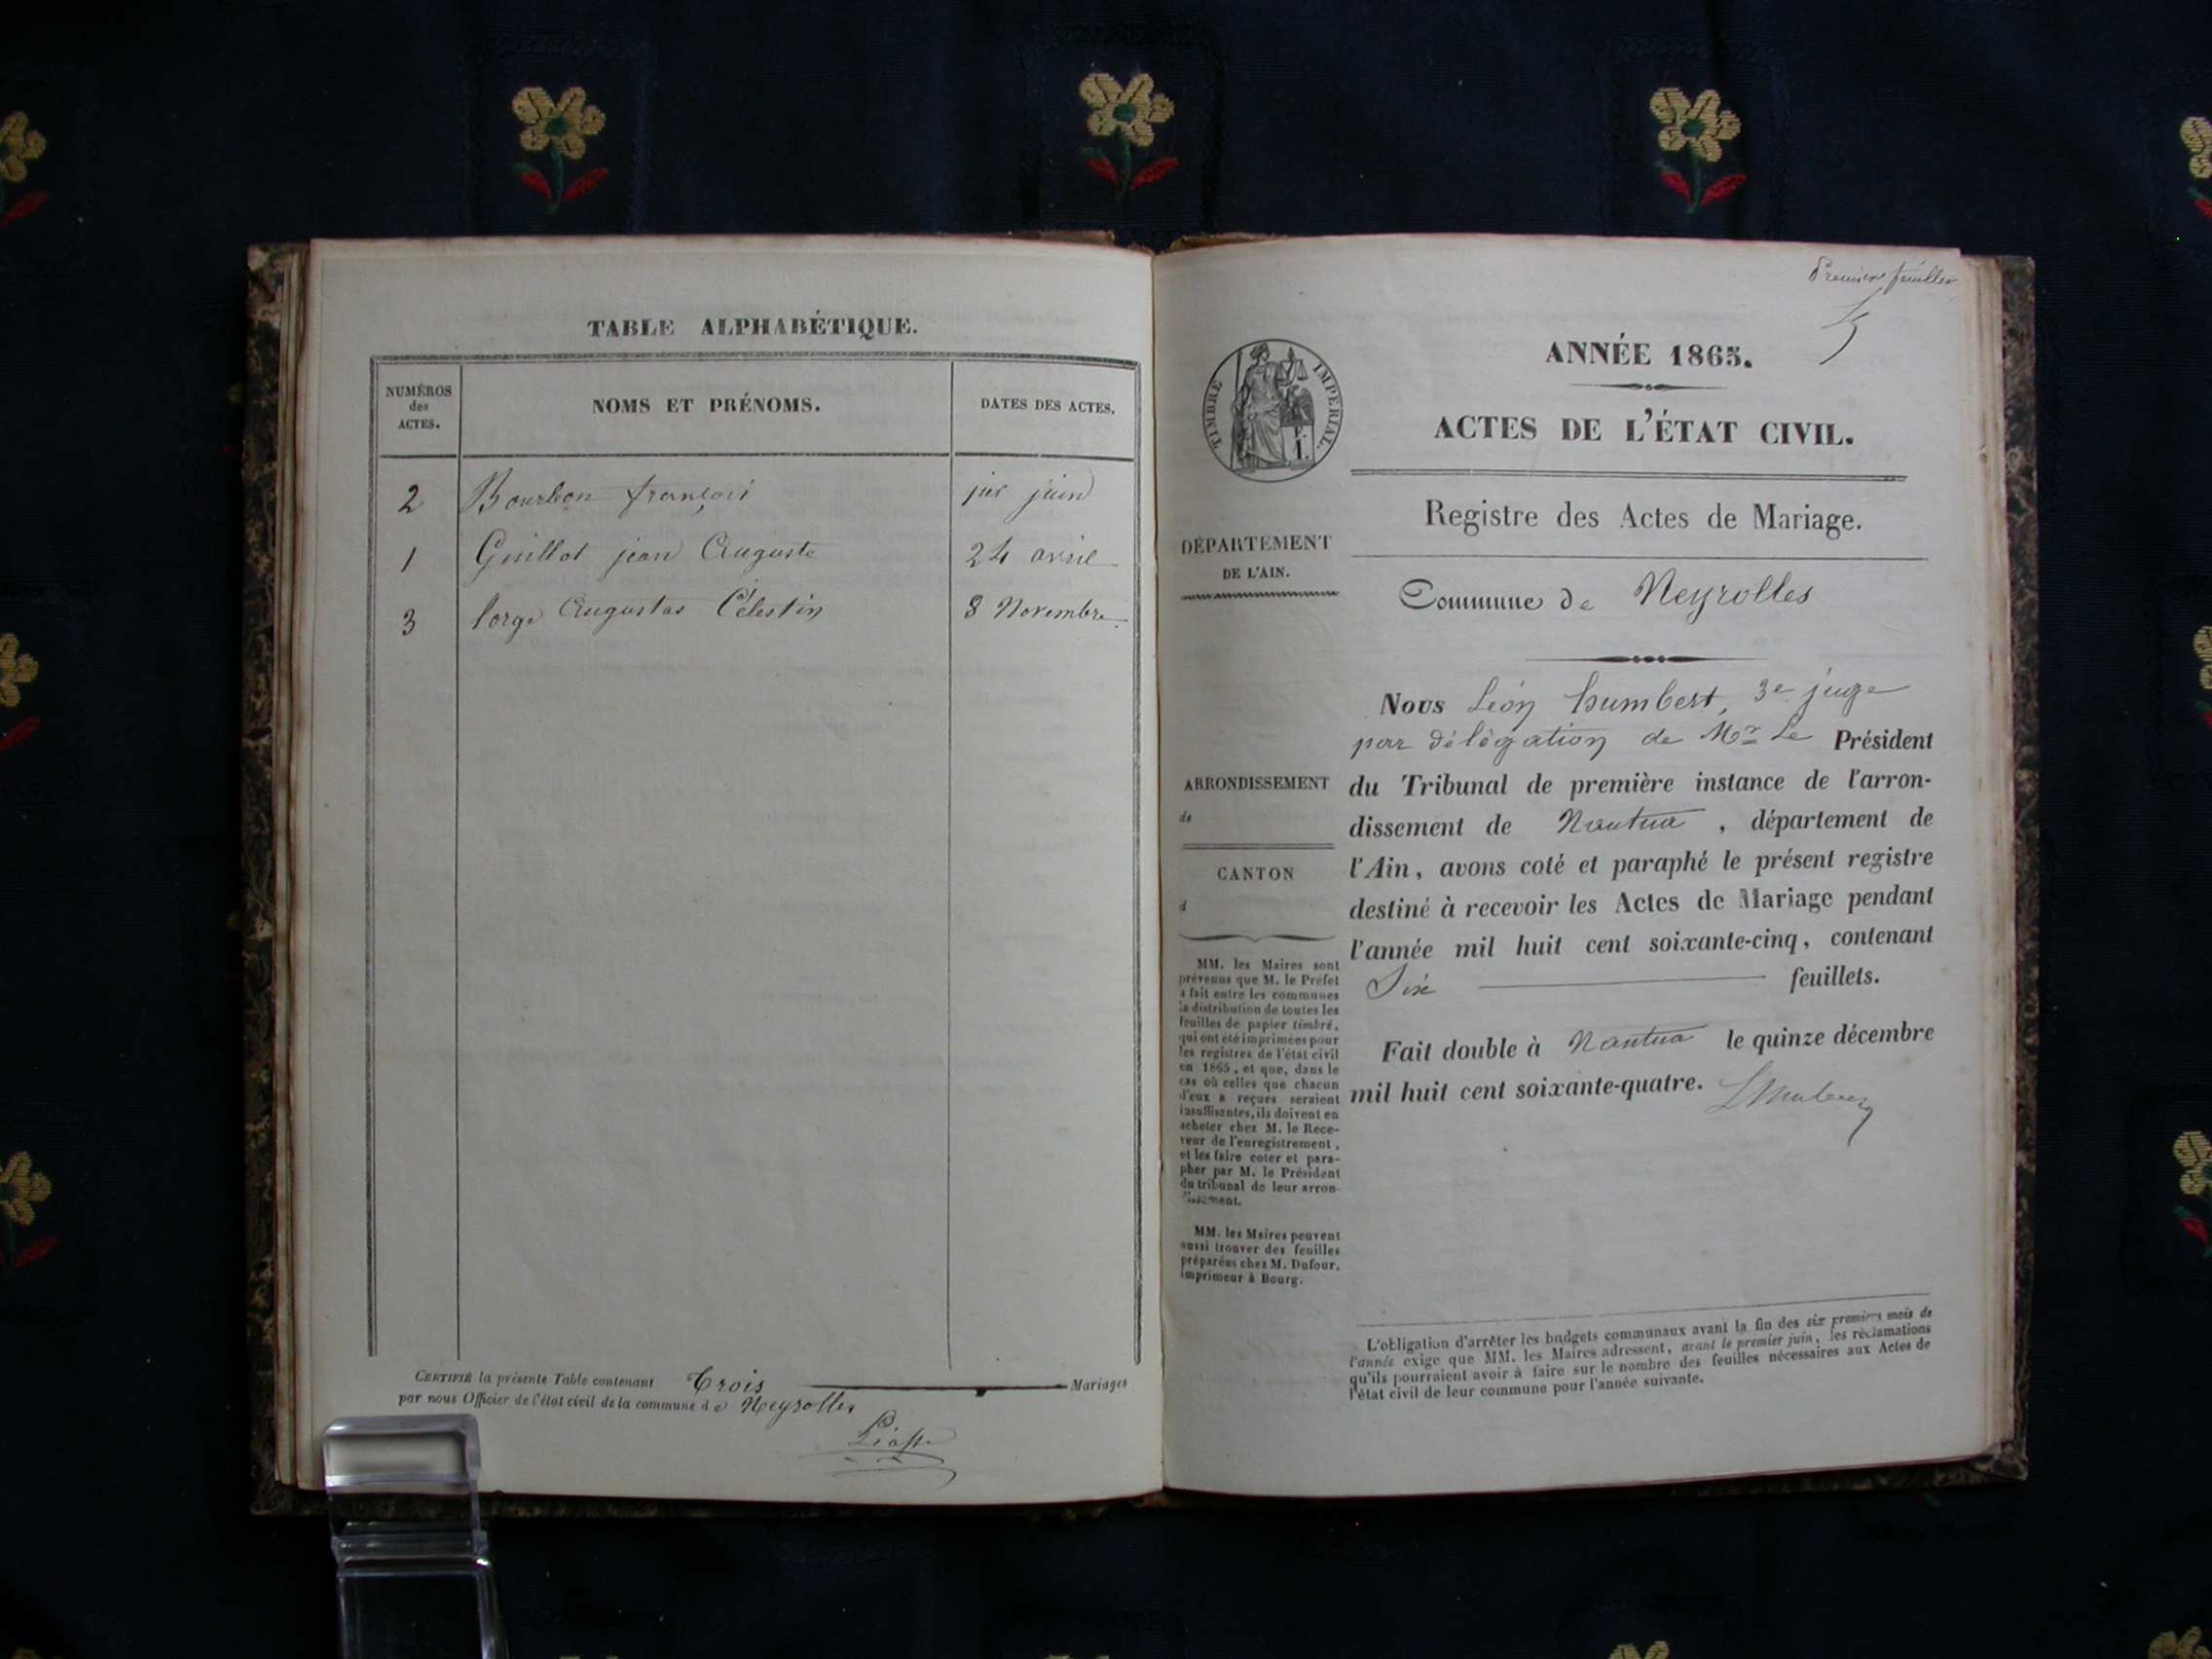 TABLE ALPHABÉTIQUE.
NUMÉROS
des
ACTES.
NOMS ET PRÉNOMS.
DATES DES ACTES.
2 Bourbon françois 1er juin
1 Guillot jean Auguste 24 avril
3 Augustas Célestin 8 Novembre
CERTIFIÉ la présente Table contenant Trois Mariages
par nous Officier de l'état civil de la commune de Neyrolles
Premier feuillet
ANNÉE 1865.
TIMBRE IMPÉRIAL.
ACTES DE L'ÉTAT CIVIL.
Registre des Actes de Mariage.
DÉPARTEMENT
DE L'AIN.
Commune de Neyrolles
ARRONDISSEMENT
de
CANTON
d
MM. les Maires sont
prévenus que M. le Préfet
a fait entre les communes
la distribution de toutes les
feuilles de papier timbré,
qui ont été imprimées pour
les registres de l'état civil
en 1865, et que, dans le
cas où celles que chacun
d'eux a reçues seraient
insuffisantes, ils doivent en
acheter chez M. le Rece-
veur de l'enregistrement,
et les faire coter et para-
pher par M. le Président
du tribunal de leur arron-
dissement.
MM. les Maires peuvent
aussi trouver des feuilles
préparées chez M. Dufour,
imprimeur à Bourg.
Nous Léon humbert, 3e juge
par délégation de Mr Le Président
du Tribunal de première instance de l'arron-
dissement de Nantua, département de
l'Ain, avons coté et paraphé le présent registre
destiné à recevoir les Actes de Mariage pendant
l'année mil huit cent soixante-cinq, contenant
Six feuillets.
Fait double à Nantua le quinze décembre
mil huit cent soixante-quatre.
L'obligation d'arrêter les budgets communaux avant la fin des six premiers mois de
l'année exige que MM. les Maires adressent, avant le premier juin, les réclamations
qu'ils pourraient avoir à faire sur le nombre des feuilles nécessaires aux Actes de
l'état civil de leur commune pour l'année suivante.